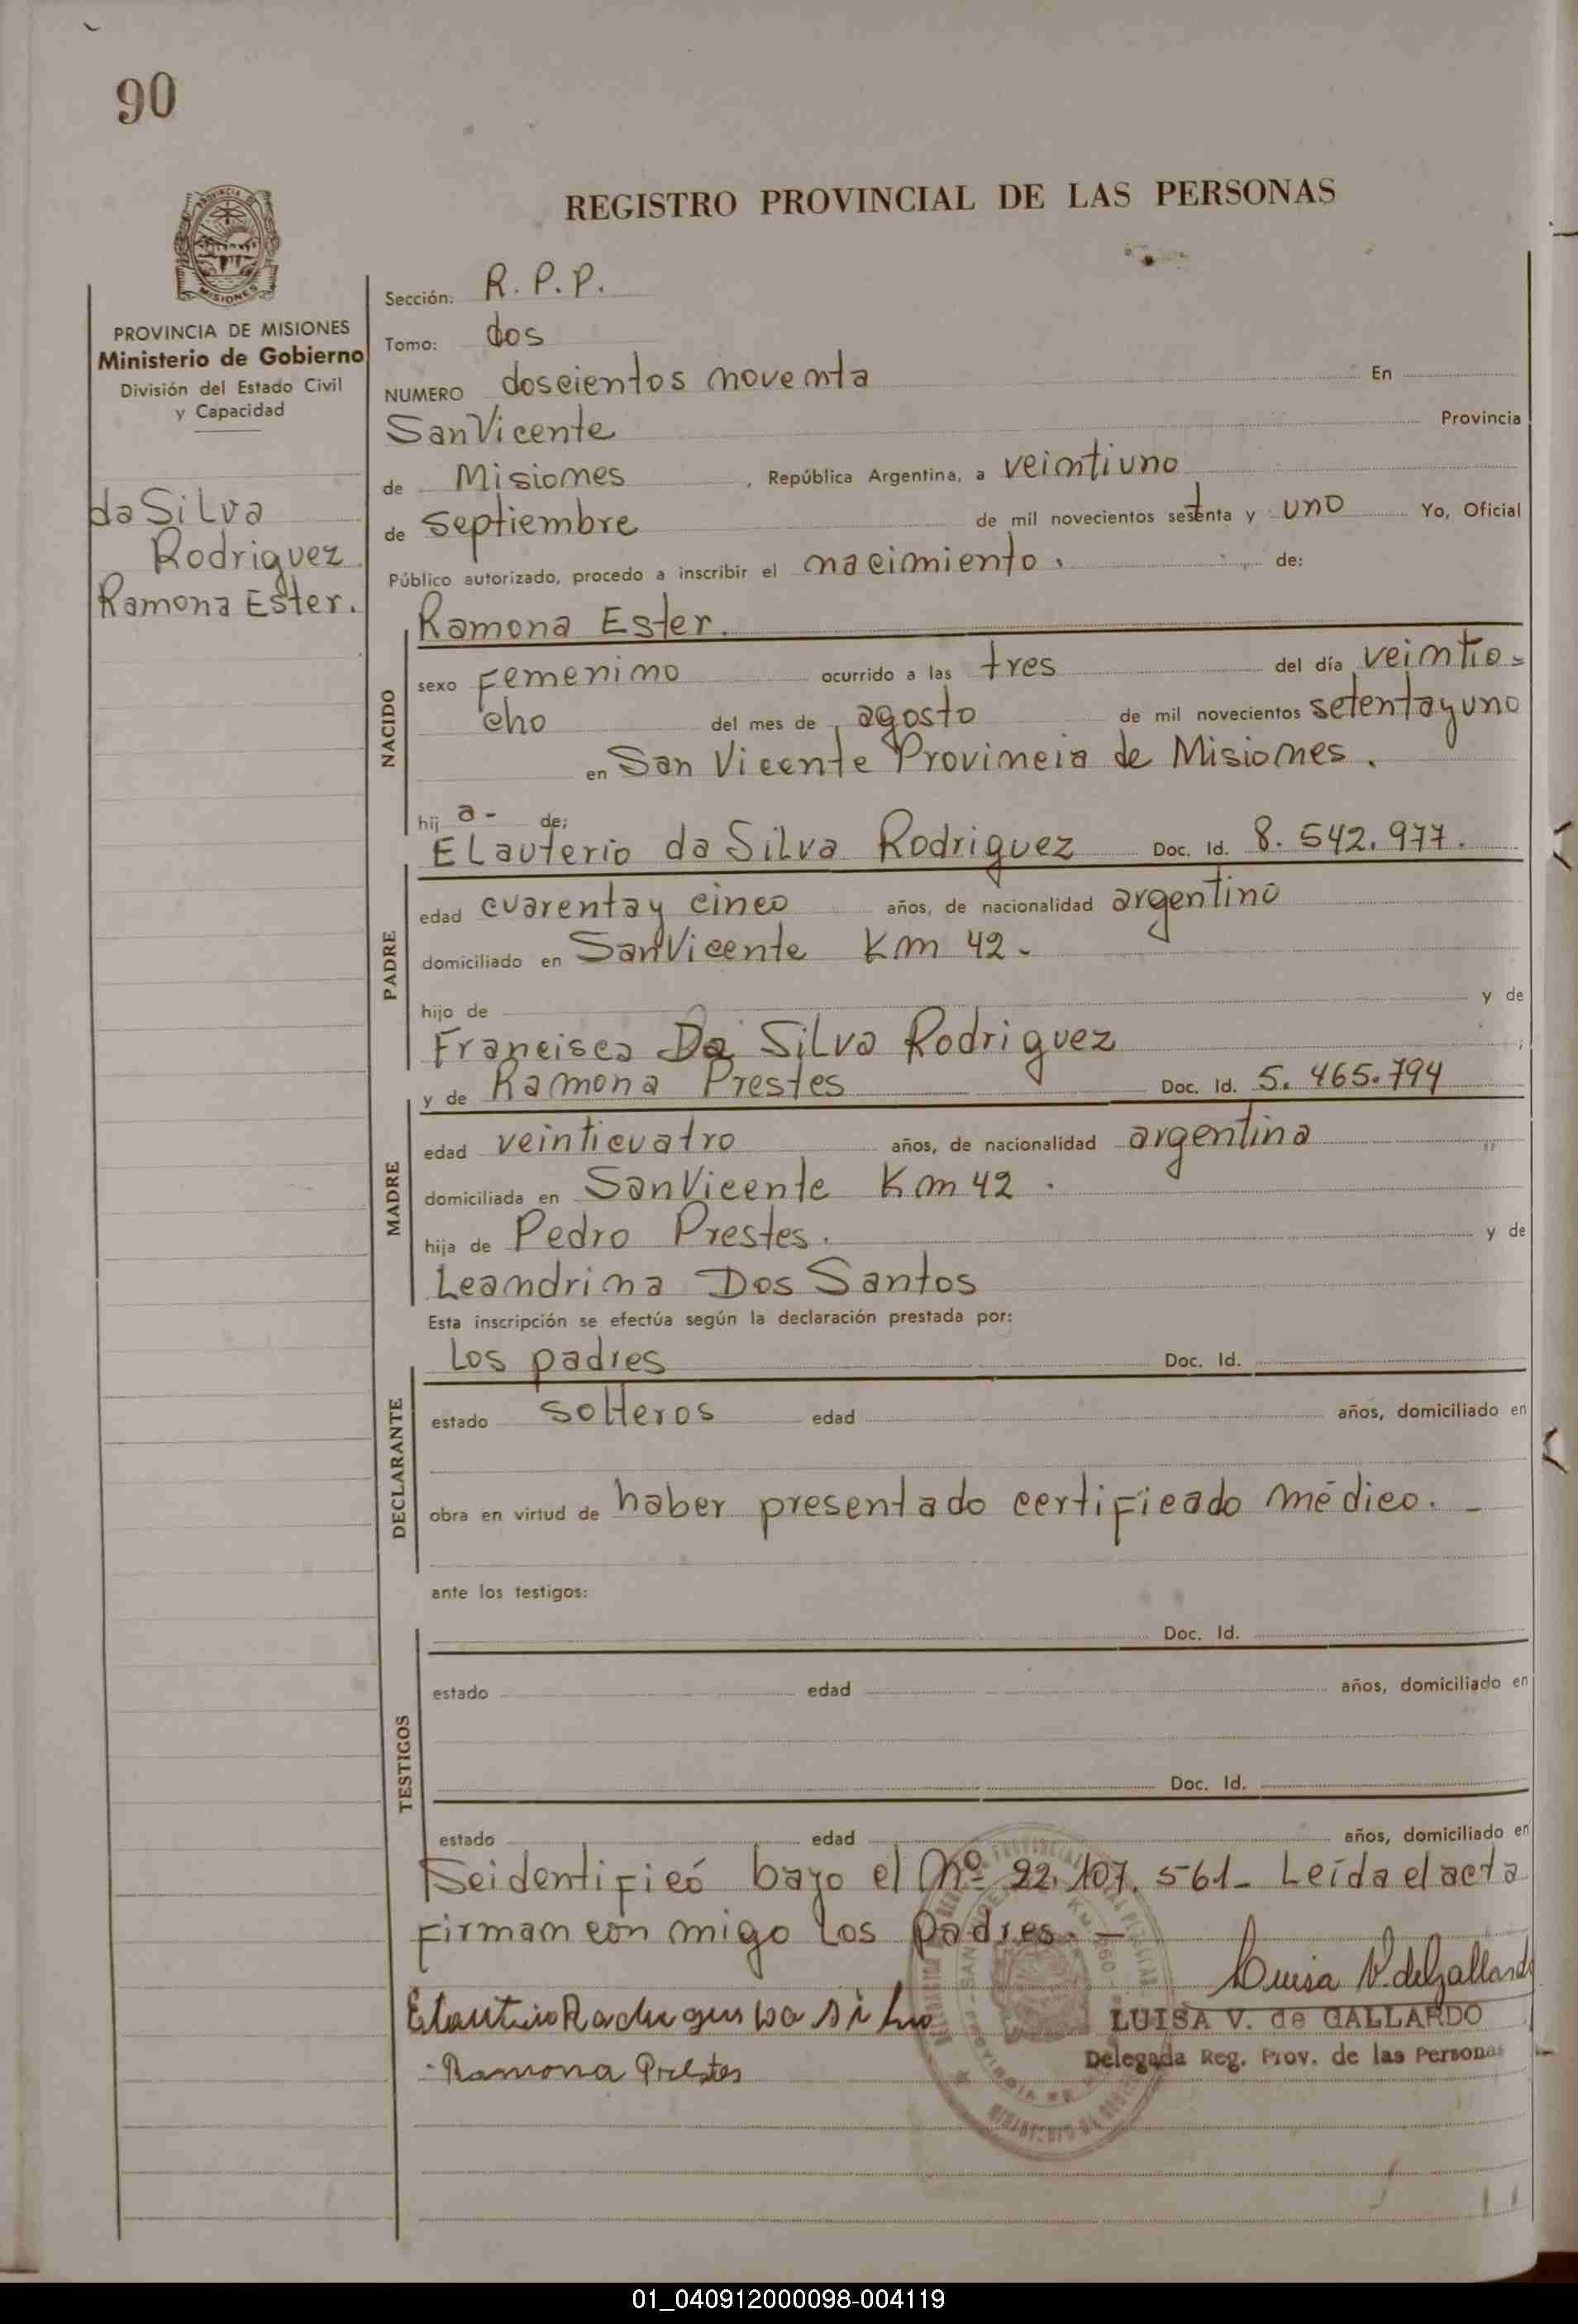 90
REGISTRO PROVINCIAL DE LAS PERSONAS
PROVINCIA DE MISIONES
Ministerio de Gobierno
División del Estado Civil
y Capacidad
da Silva
Rodriguez
Ramona Ester.
Sección: R. P. P.
Tomo: dos
NUMERO doscientos noventa En
San Vicente Provincia
de Misiones, República Argentina, a veintiuno
de septiembre de mil novecientos setenta y uno Yo, Oficial
Público autorizado, procedo a inscribir el nacimiento. de:
NACIDO
Ramona Ester.
sexo Femenino ocurrido a las tres del día veintio-
cho del mes de agosto de mil novecientos setenta y uno
en San Vicente Provincia de Misiones.
hij a- de;
PADRE
Elauterio da Silva Rodriguez Doc. Id. 8.542.977.
edad cuarenta y cinco años, de nacionalidad argentino
domiciliado en San Vicente Km 42-
hijo de y de
Francisca Da Silva Rodriguez ;
MADRE
y de Ramona Prestes Doc. Id. 5.465.794
edad veinticuatro años, de nacionalidad argentina
domiciliada en San Vicente Km 42.
hija de Pedro Prestes. y de
Leandrina Dos Santos
Esta inscripción se efectúa según la declaración prestada por:
DECLARANTE
Los padres Doc. Id.
estado solteros edad años, domiciliado en
obra en virtud de haber presentado certificado médico. -
ante los testigos:
TESTIGOS
Doc. Id.
estado edad años, domiciliado en
Doc. Id.
estado edad años, domiciliado en
Se identificó bajo el Nº 22.107.561- Leída el acta
firman con migo los padres. -
Luisa V. de Gallardo
LUISA V. de GALLARDO
Delegada Reg. Prov. de las Personas
Ramona Prestes
01_040912000098-004119